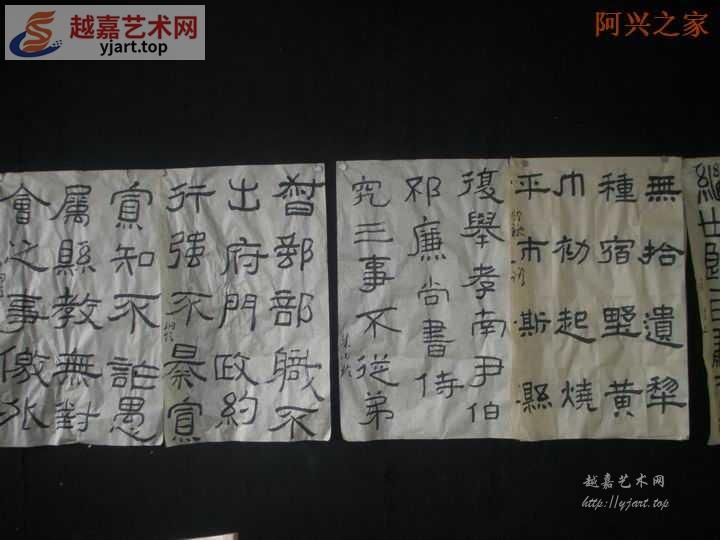 越嘉艺术网
yjart.top
阿兴之家
無拾遺犁
種宿野黃
巾初起燒
平市斯縣
復舉孝南尹伯
祁廉尚書侍
究三事不從弟
督郵部職不
出府門政約
行強不暴寡
寡知不詐愚
屬縣教無對
會之事徼張
越嘉艺术网
http://yjart.top